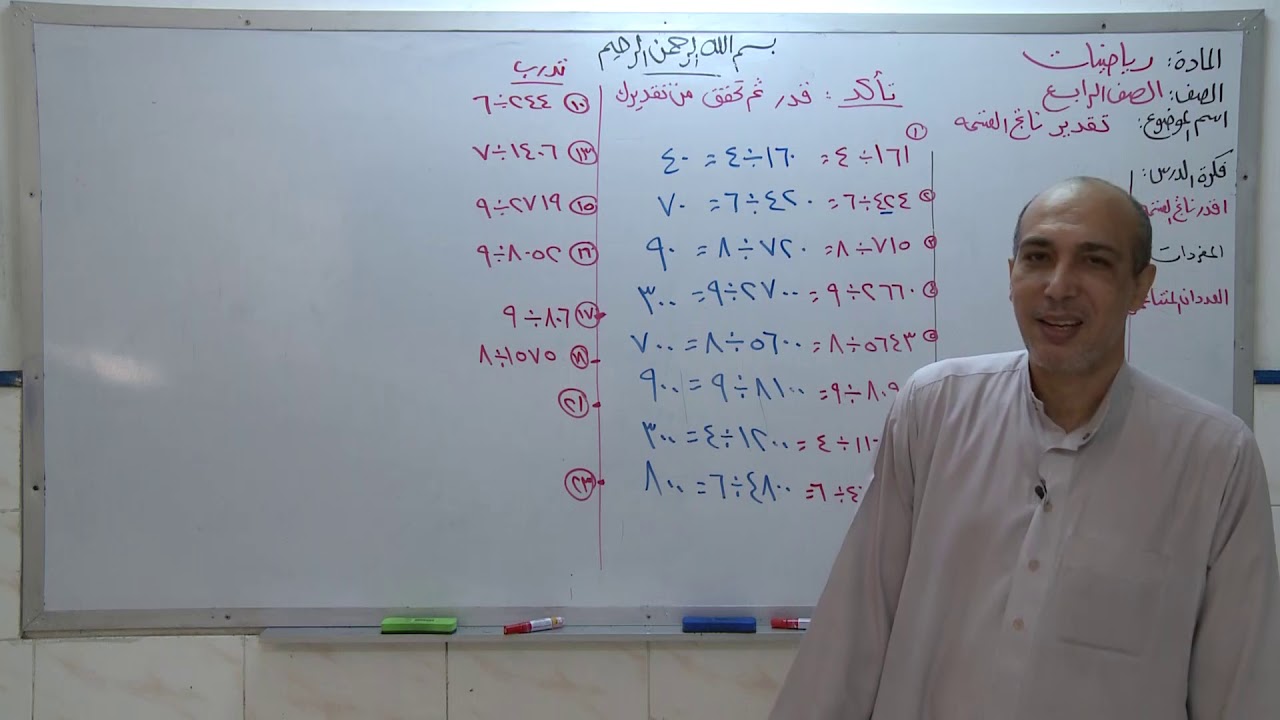 بسم الله الرحمن الرحيم
المادة: رياضيات
الصف: الصف الرابع
اسم الموضوع: تقدير ناتج القسمة
فكرة الدرس:
اقدر ناتج القسمة
المفردات
العددان
تأكد: قدر ثم تحقق من تقديرك
١ ١٦١÷٤ = ١٦٠÷٤ = ٤٠
٢ ٤٢٤÷٦ = ٤٢٠÷٦ = ٧٠
٣ ٧١٥÷٨ = ٧٢٠÷٨ = ٩٠
٤ ٢٦٦٠÷٩ = ٢٧٠٠÷٩ = ٣٠٠
٥ ٥٦٤٣÷٨ = ٥٦٠٠÷٨ = ٧٠٠
÷٩ = ٨١٠٠÷٩ = ٩٠٠
÷٤ = ١٢٠٠÷٤ = ٣٠٠
÷٦ = ٤٨٠٠÷٦ = ٨٠٠
تدرب
١٠ ٢٤٤÷٦
١٣ ١٤٠٦÷٧
١٥ ٢٧١٩÷٩
١٦ ٨٠٥٢÷٩
١٧ ٨٠٦÷٩
١٨ ١٥٧٥÷٨
٢١
٢٣